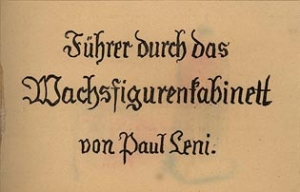 Führer durch das
Wachsfigurenkabinett
von Paul Leni.